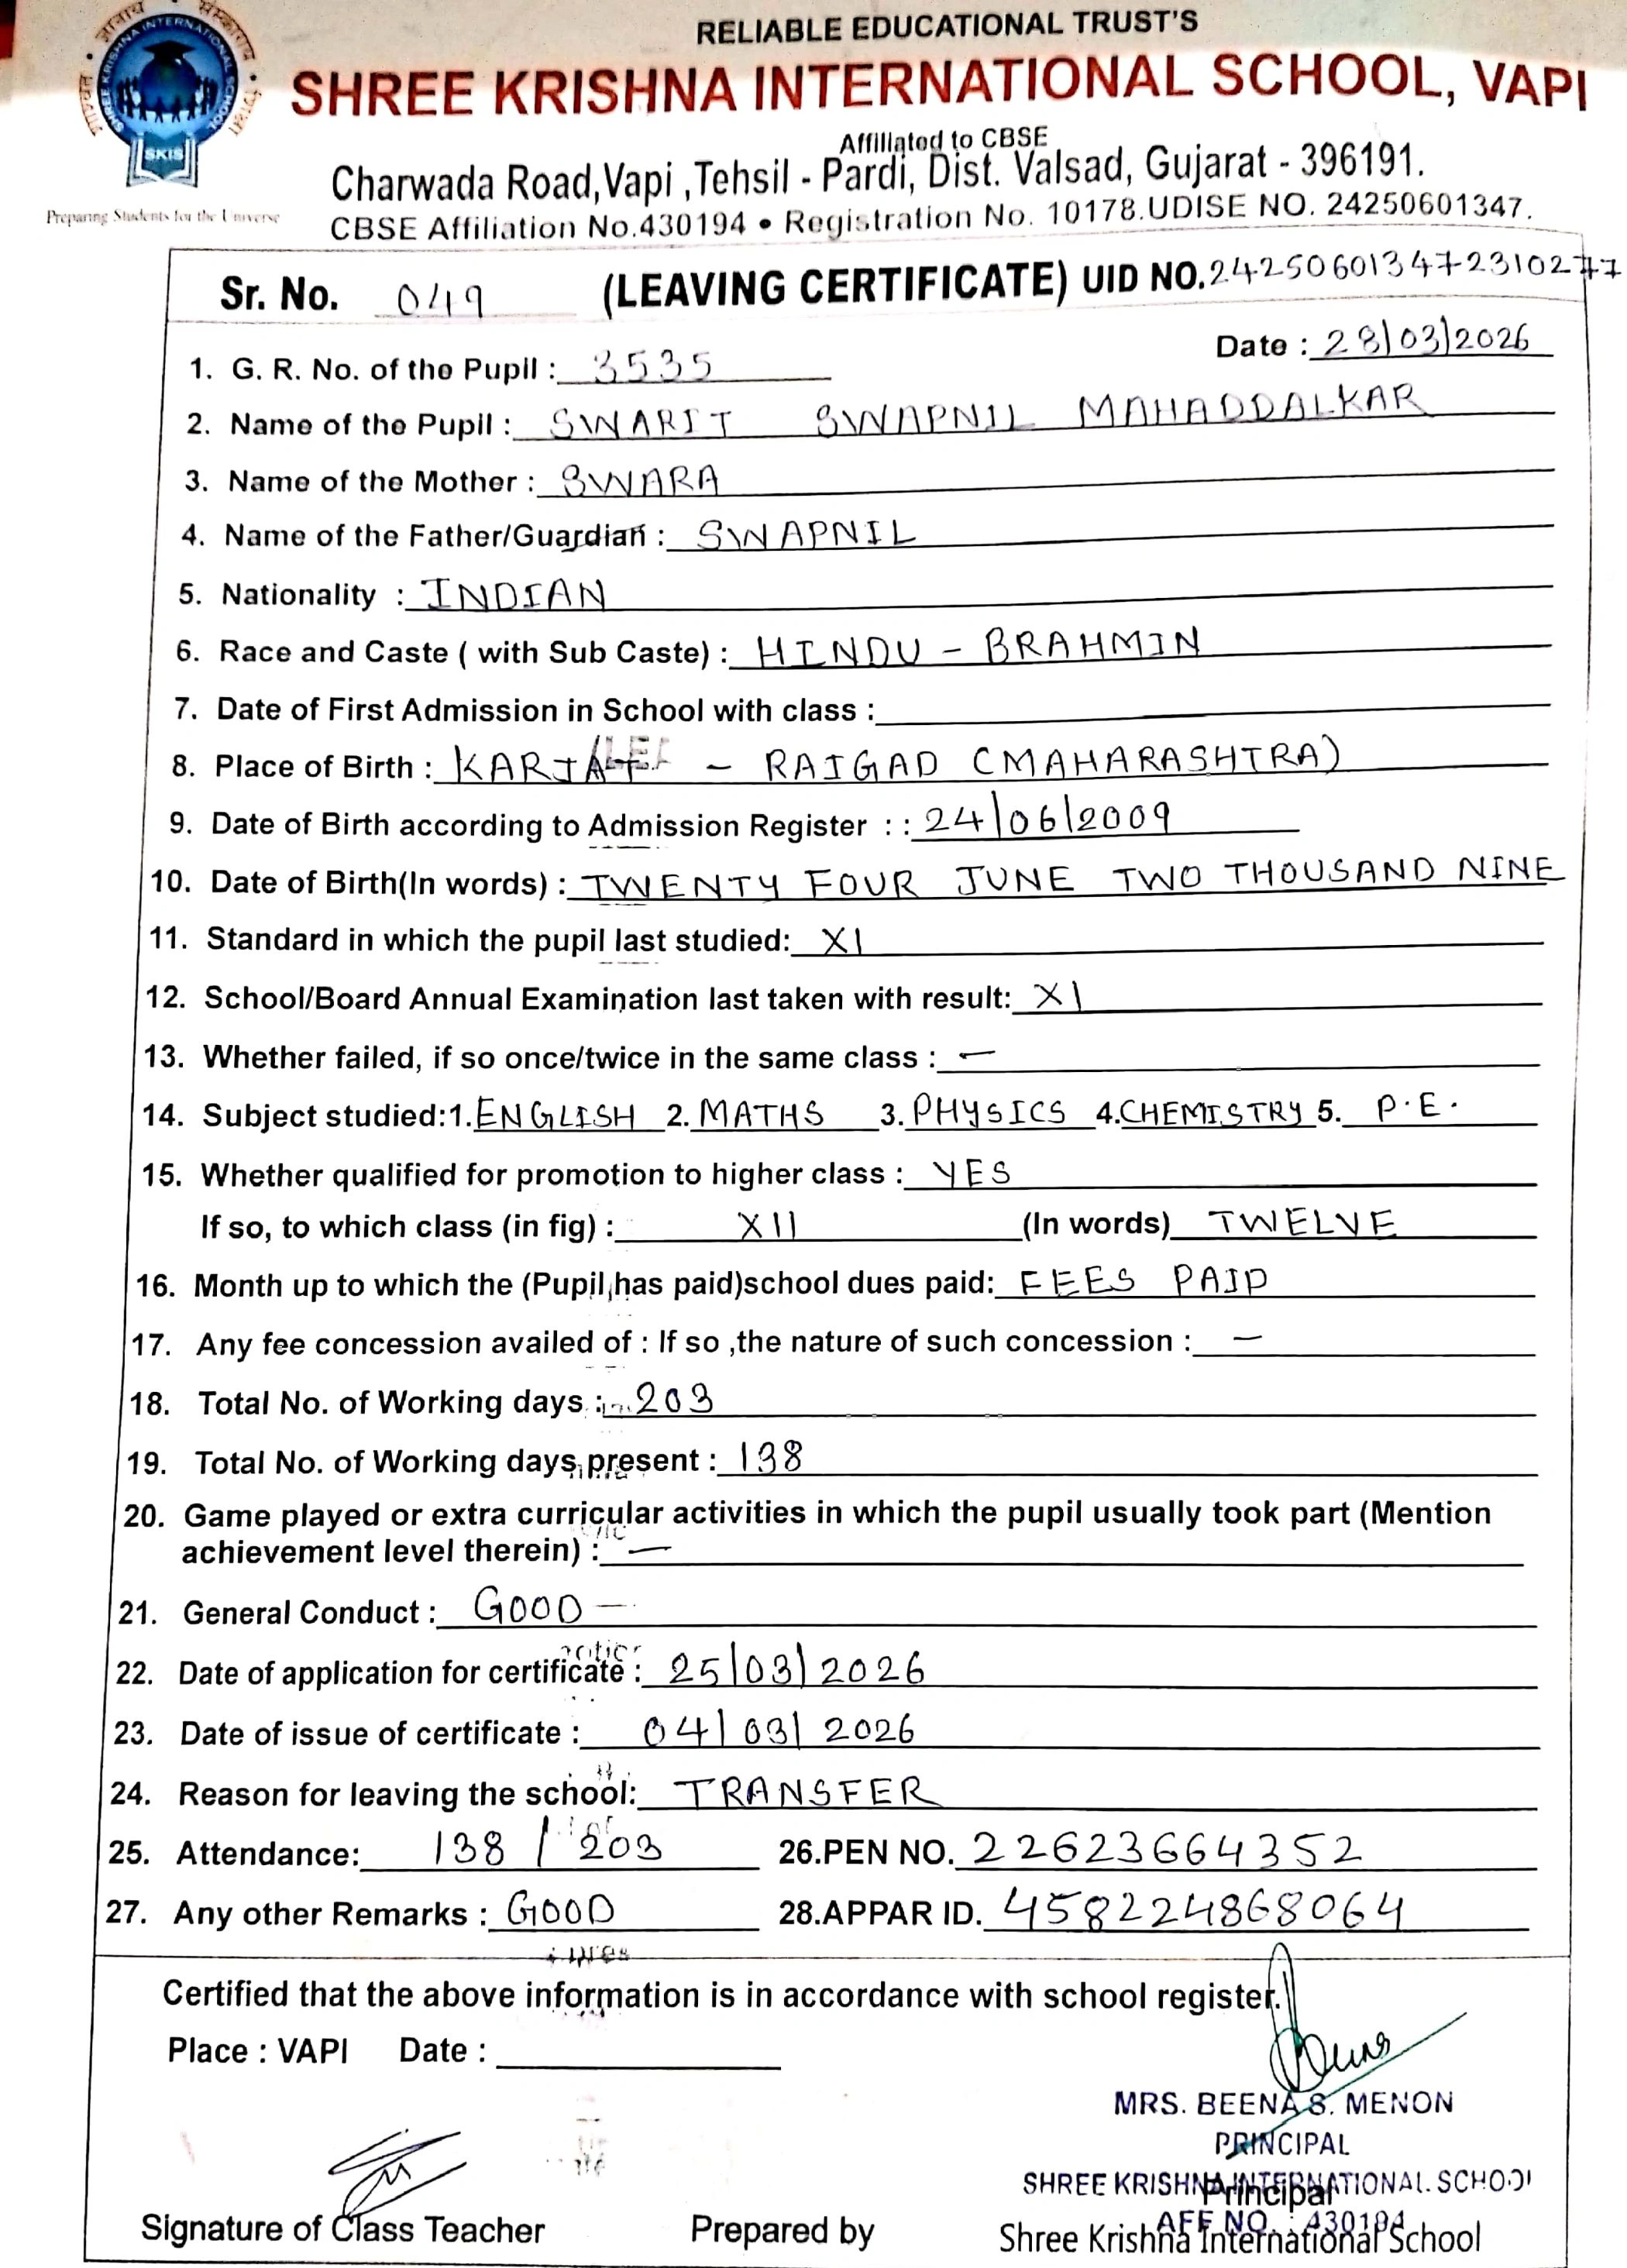 RELIABLE EDUCATIONAL TRUST'S
SHREE KRISHNA INTERNATIONAL SCHOOL, VAPI
Affiliated to CBSE
Charwada Road,Vapi ,Tehsil - Pardi, Dist. Valsad, Gujarat - 396191.
CBSE Affiliation No.430194 • Registration No. 10178.UDISE NO. 24250601347.
SKIS
Preparing Students for the Universe
Sr. No. 049 (LEAVING CERTIFICATE) UID NO.242506013472310277
Date : 28/03/2026
1. G. R. No. of the Pupil : 3535
2. Name of the Pupil : SWARIT SWAPNIL MAHADDALKAR
3. Name of the Mother : SWARA
4. Name of the Father/Guardian : SWAPNIL
5. Nationality : INDIAN
6. Race and Caste ( with Sub Caste) : HINDU - BRAHMIN
7. Date of First Admission in School with class :
8. Place of Birth : KARJAT - RAIGAD (MAHARASHTRA)
9. Date of Birth according to Admission Register : : 24/06/2009
10. Date of Birth(In words) : TWENTY FOUR JUNE TWO THOUSAND NINE
11. Standard in which the pupil last studied: XI
12. School/Board Annual Examination last taken with result: XI
13. Whether failed, if so once/twice in the same class : —
14. Subject studied:1.ENGLISH 2.MATHS 3.PHYSICS 4.CHEMISTRY 5. P.E.
15. Whether qualified for promotion to higher class : YES
If so, to which class (in fig) : XII (In words) TWELVE
16. Month up to which the (Pupil has paid)school dues paid: FEES PAID
17. Any fee concession availed of : If so ,the nature of such concession : —
18. Total No. of Working days : 203
19. Total No. of Working days present : 138
20. Game played or extra curricular activities in which the pupil usually took part (Mention
achievement level therein) : —
21. General Conduct : GOOD —
22. Date of application for certificate : 25/03/2026
23. Date of issue of certificate : 04/03/2026
24. Reason for leaving the school: TRANSFER
25. Attendance: 138 / 203 26.PEN NO. 22623664352
27. Any other Remarks : GOOD 28.APPAR ID. 458224868064
Certified that the above information is in accordance with school register.
Place : VAPI Date :
MRS. BEENA S. MENON
PRINCIPAL
SHREE KRISHNA INTERNATIONAL SCHOOL
Principal
AFF NO. : 430194
Signature of Class Teacher Prepared by Shree Krishna International School